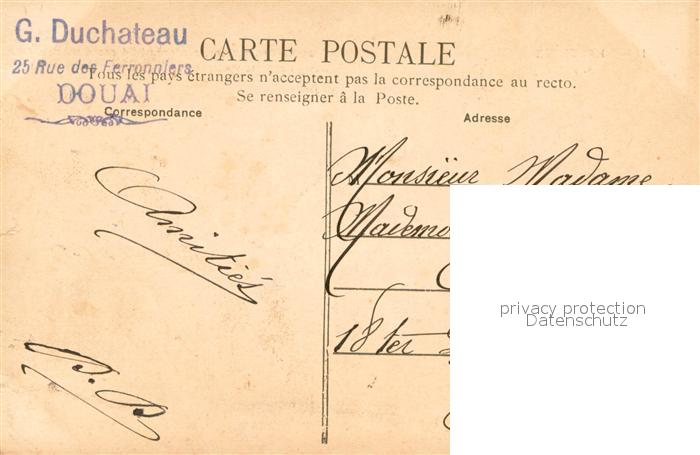 G. Duchateau
25 Rue des Ferronniers
DOUAI
CARTE POSTALE
Tous les pays étrangers n'acceptent pas la correspondance au recto.
Se renseigner à la Poste.
Correspondance
Adresse
Amitiés
Monsieur Madame
Mademo
18 ter
privacy protection
Datenschutz